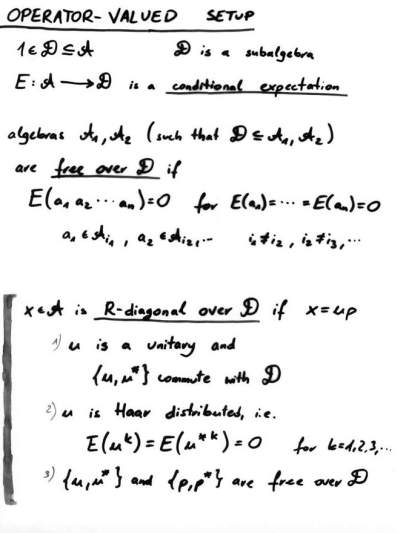 OPERATOR-VALUED SETUP
1∈𝒟⊆𝒜 𝒟 is a subalgebra
E: 𝒜 ⟶ 𝒟 is a conditional expectation
algebras 𝒜₁, 𝒜₂ (such that 𝒟 ⊆ 𝒜₁, 𝒜₂)
are free over 𝒟 if
E(a₁ a₂ ⋯ aₙ)=0 for E(a₁)= ⋯ = E(aₙ)=0
a₁ ∈ 𝒜ᵢ₁, a₂ ∈ 𝒜ᵢ₂,… i₁≠i₂, i₂≠i₃,…
x∈𝒜 is R-diagonal over 𝒟 if x=up
1) u is a unitary and
{u,u*} commute with 𝒟
2) u is Haar distributed, i.e.
E(uᵏ)=E(u*ᵏ)=0 for k=1,2,3,…
3) {u,u*} and {p,p*} are free over 𝒟